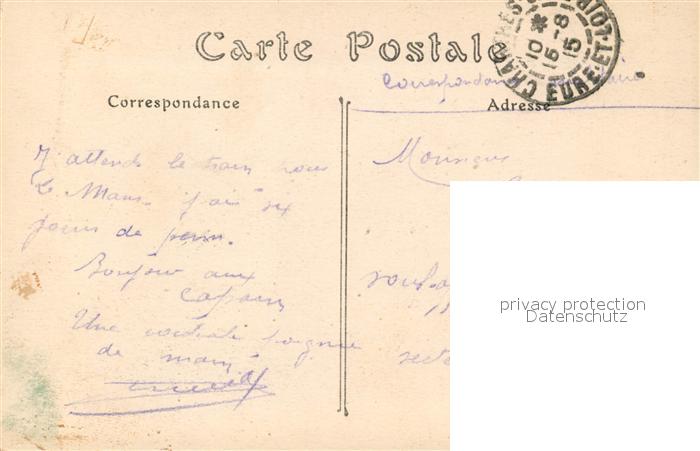 Carte Postale
CHARTRES
10 *
15-8
15
EURE-ET-LOIR
Correspondance
Correspondance
Adresse
J'attends le train pour
Le Mans. J'ai six
jours de perm.
Bonjour aux
copains
Une cordiale poignée
de main
Monsieur
privacy protection
Datenschutz